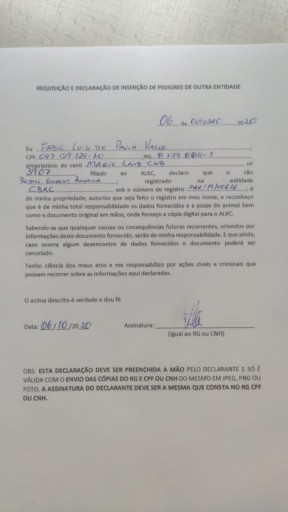 REQUISIÇÃO E DECLARAÇÃO DE INSERÇÃO DE PEDIGREE DE OUTRA ENTIDADE
06 de OUTUBRO 2020
Eu FABIO LUIS DE PAULA VALLE
CPF RG
proprietário do canil MAGIE LAND CWB nº
3107 filiado ao ALKC, declaro que o cão
registrado na entidade
CBKC sob o número de registro é
de minha propriedade, autorizo que seja feito o registro em meu nome, e reconheço
que é de minha total responsabilidade os dados fornecidos e a posse do animal bem
como o documento original em mãos, onde forneço a cópia digital para o ALKC.
Sabendo-se que quaisquer causas ou consequências futuras recorrentes, oriundas por
informações deste documento fornecido, serão de minha responsabilidade. E que ainda,
caso ocorra algum desencontro de dados fornecidos o documento poderá ser
cancelado.
Tenho ciência dos meus atos e me responsabilizo por ações cíveis e criminais que
possam recorrer sobre as informações aqui declaradas.
O acima descrito é verdade e dou fé.
Data: 06/10/2020 Assinatura:
(Igual ao RG ou CNH)
OBS: ESTA DECLARAÇÃO DEVE SER PREENCHIDA A MÃO PELO DECLARANTE E SÓ É
VÁLIDA COM O ENVIO DAS CÓPIAS DO RG E CPF OU CNH DO MESMO EM JPEG, PNG OU
FOTO. A ASSINATURA DO DECLARANTE DEVE SER A MESMA QUE CONSTA NO RG CPF
OU CNH.